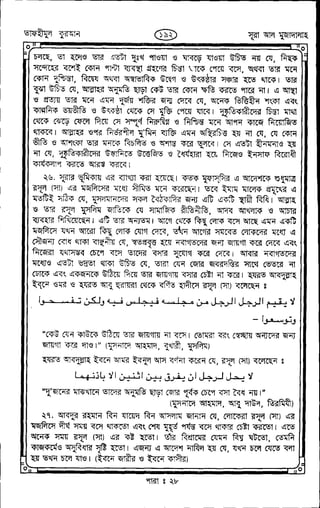 তাফহীমুল কুরআন
১৯২
সূরা আল মুজাদালাহ
চলছে, তা হলেও তার এতটা দুঃখ পাওয়া ও ঘাবড়ে যাওয়া উচিত নয় যে, নিছক
সন্দেহের বশেই কোন পাল্টা ব্যবস্থা গ্রহণের চিন্তা তাকে পেয়ে বসে, অথবা তার মনে
কোন দুশ্চিন্তা, বিদ্বেষ অথবা অস্বাভাবিক উদ্বেগ ও উৎকণ্ঠার সঞ্চার হতে থাকে। তার
বুঝা উচিত যে, আল্লাহর অনুমতি ছাড়া কেউ তার কোন ক্ষতি করতে পারে না। এ আস্থা
ও প্রত্যয় তার মনে এমন দুর্জয় শক্তির জন্ম দেবে যে, অনেক ভিত্তিহীন শংকা এবং
কাল্পনিক ভয়ভীতি ও উৎকণ্ঠা থেকে সে মুক্তি পেয়ে যাবে। দুষ্কৃতিকারীদের চিন্তা মাথা
থেকে ঝেড়ে ফেলে দিয়ে সে সম্পূর্ণ নিরুদ্বিগ্ন ও নিশ্চিন্ত মনে আপন কাজে নিয়োজিত
থাকবে। আল্লাহর ওপর নির্ভরশীল মু'মিন ব্যক্তি এমন অস্থিরচিত্ত হয় না যে, যে কোন
ভীতি ও আশংকা তার মনকে বিচলিত ও অশান্ত করে তুলবে। সে এতটা হীনমনাও হয়
না যে, দুষ্কৃতিকারীদের উস্কানিতে উত্তেজিত ও ধৈর্যহারা হয়ে নিজেও ইনসাফ বিরোধী
কার্যকলাপ করতে আরম্ভ করবে।
২৬. সূরার ভূমিকায় এর ব্যাখ্যা করা হয়েছে। কোন কোন মুফাসসির এ আদেশকে শুধুমাত্র
রসূল (সা) এর মজলিসের মধ্যে সীমিত মনে করেছেন। তবে ইমাম মালেক প্রমুখের এ
মতটিই সঠিক যে, মুসলমানদের সকল বৈঠকাদির জন্য এটি একটি স্থায়ী বিধি। আল্লাহ
ও তার রসূল মুসলিম জাতিকে যে সামাজিক রীতিনীতি, আদব আখলাক ও আচার
ব্যবহার শিখিয়েছেন। এটি তার অন্যতম। আগে থেকে কিছু লোক বসে আছে এমন একটি
মজলিসে যখন আরো কিছু লোক যোগ দেবে, তখন আগের সমবেত লোকদের মধ্যে এ
সৌজন্য বোধ থাকা বাঞ্ছনীয় যে, স্বতপ্রবৃত্ত হয়ে নবাগতদের জন্য জায়গা করে দেবে এবং
নিজেরা যথাসম্ভব চেপে বসে তাদের বসার সুযোগ করে দেবে। আবার নবাগতদের
মধ্যেও এতটা ভদ্রতা থাকা উচিত যে, তারা যেন জোর জবরদস্তির সাথে ভেতরে না
ঢোকে এবং একজনকে উঠিয়ে দিয়ে তার জায়গায় বসার চেষ্টা না করে। হযরত আবদুল্লাহ
ইবনে ওমর ও হযরত আবু হুরায়রা থেকে বর্ণিত হাদীসে রসূল (সা) বলেছেন ঃ
لا يقيم الرجل الرجل من مجلسه فيجلس فيه ولكن تفسحوا
وتوسعوا -
"কেউ যেন কাউকে উঠিয়ে তার জায়গায় না বসে। তোমরা বরং স্বেচ্ছায় অন্যদের জন্য
জায়গা করে দাও।" (মুসনাদে আহমাদ, বুখারী, মুসলিম)
হযরত আবদুল্লাহ ইবনে আমর ইবনুল আস বর্ণনা করেন যে, রসূল (সা) বলেছেন ঃ
لا يحل لرجل ان يفرق بين اثنين الا باذنهما
"দু'জনের মাঝখানে তাদের অনুমতি ছাড়া জোর পূর্বক চেপে বসা বৈধ নয়।"
(মুসনাদে আহমাদ, আবু দাউদ, তিরমিযী)
২৭. আবদুর রহমান বিন যায়েদ বিন আসলাম জানান যে, লোকেরা রসূল (সা) এর
মজলিসে দীর্ঘ সময় বসে থাকতো এবং শেষ মুহূর্ত পর্যন্ত বসে থাকার চেষ্টা করতো। এতে
অনেক সময় রসূল (সা) এর কষ্ট হতো। তাঁর বিশ্রামের যেমন বিঘ্ন ঘটতো, তেমনি
কাজকর্মেও অসুবিধার সৃষ্টি হতো। এজন্য এ আদেশ নাযিল হয় যে, যখন চলে যেতে বলা
হয় তখন চলে যাও। (ইবনে জারীর ও ইবনে কাসীর)
পারা ঃ ২৮